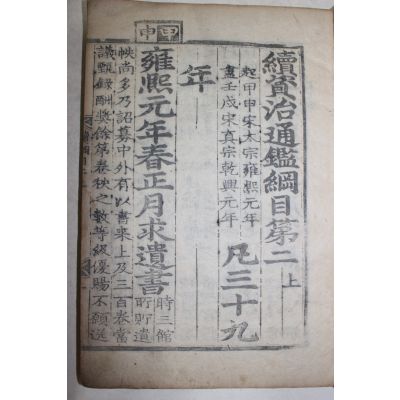 續資治通鑑綱目第二上
起甲申宋太宗雍熙元年
盡壬戌宋真宗乾興元年
凡三十九
年
甲申
雍熙元年春正月求遺書
時三館
所貯遺
帙尚多乃詔募中外有以書來上及三百卷當
議甄錄酬奬餘第卷帙之數等級優賜不願送